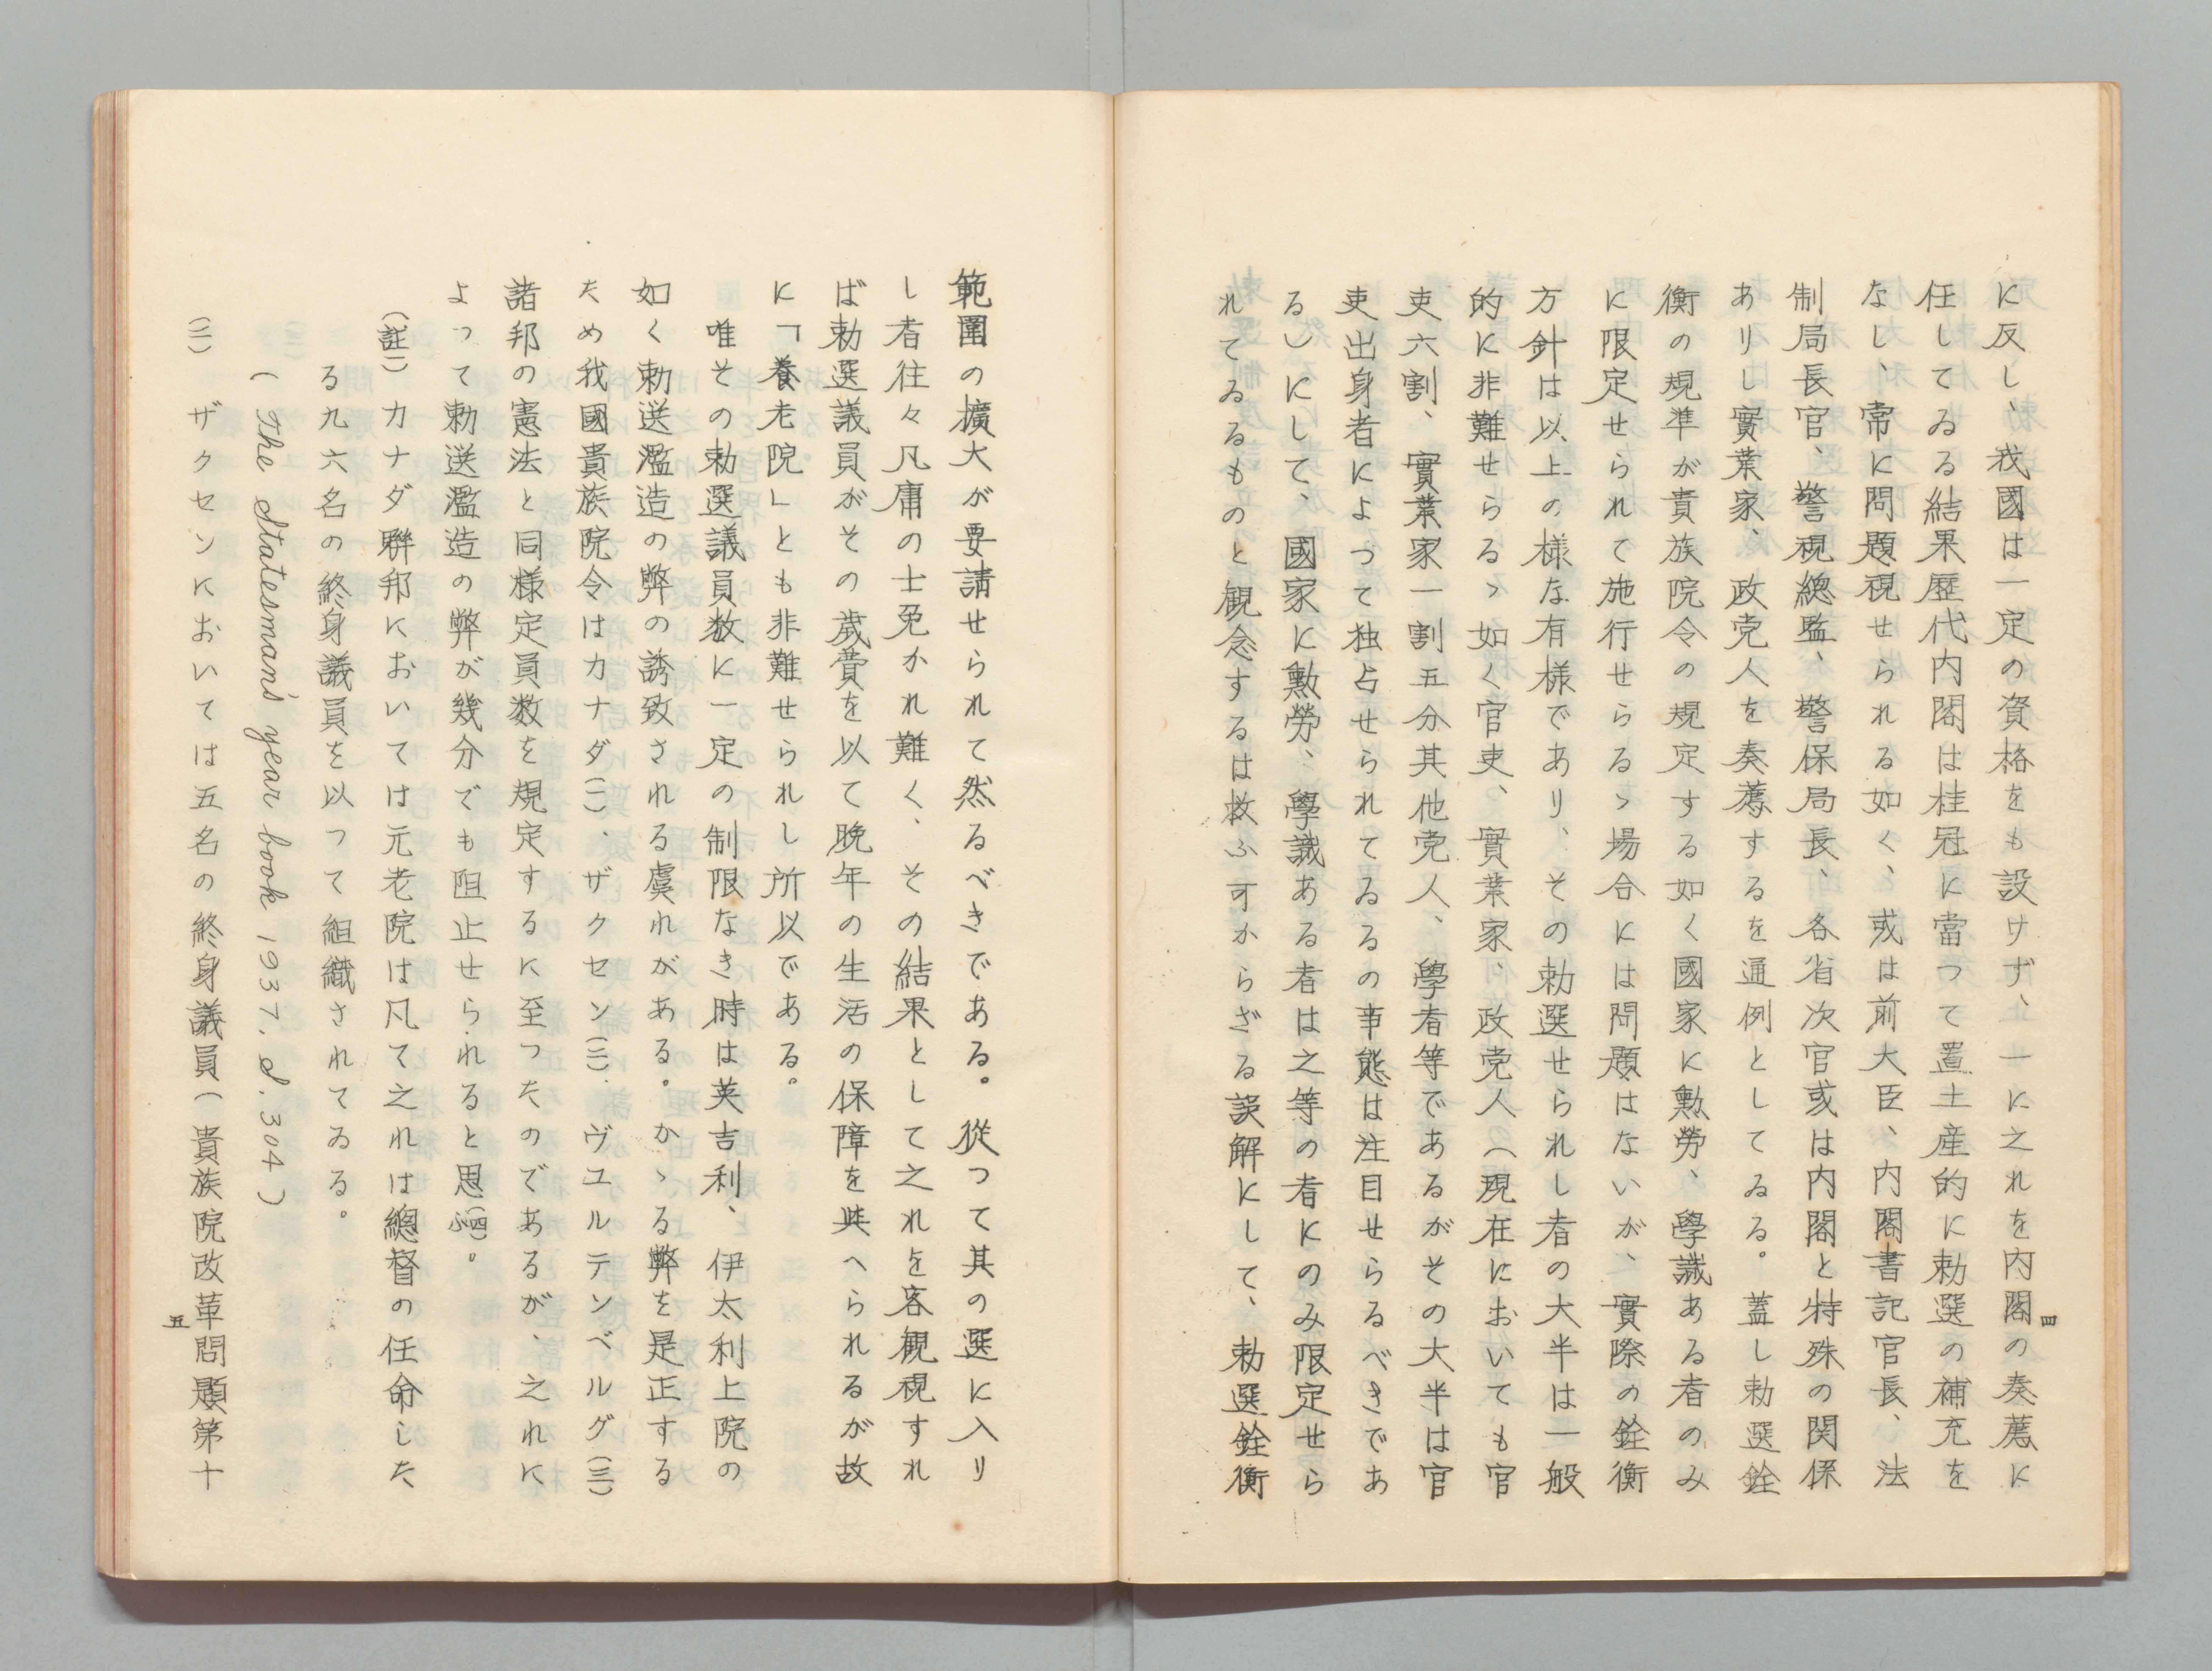 に反し、我國は一定の資格をも設けず、一に之れを内閣の奏薦に
任してゐる結果歴代内閣は桂冠に當つて置土産的に勅選の補充を
なし、常に問題視せられる如く、或は前大臣、内閣書記官長、法
制局長官、警視總監、警保局長、各省次官或は内閣と特殊の関係
ありし實業家、政党人を奏薦するを通例としてゐる。蓋し勅選銓
衡の規準が貴族院令の規定する如く國家に勲勞、學識ある者のみ
に限定せられて施行せらるゝ場合には問題はないが、實際の銓衡
方針は以上の様な有様であり、その勅選せられし者の大半は一般
的に非難せらるゝ如く官吏、實業家、政党人（現在においても官
吏六割、實業家一割五分其他党人、學者等であるがその大半は官
吏出身者によつて独占せられてゐるの事態は注目せらるべきであ
る）にして、國家に勲勞、學識ある者は之等の者にのみ限定せら
れてゐるものと観念するは救ふ可からざる誤解にして、勅選銓衡
四
範圍の擴大が要請せられて然るべきである。従つて其の選に入り
し者往々凡庸の士免かれ難く、その結果として之れを客観視すれ
ば勅選議員がその歳費を以て晩年の生活の保障を與へられるが故
に「養老院」とも非難せられし所以である。
唯その勅選議員数に一定の制限なき時は英吉利、伊太利上院の
如く勅送濫造の弊の誘致される虞れがある。かゝる弊を是正する
ため我國貴族院令はカナダ（一）、ザクセン（二）、ヴユルテンベルグ（三）
諸邦の憲法と同様定員数を規定するに至つたのであるが、之れに
よつて勅送濫造の弊が幾分でも阻止せられると思ふ（四）。
（註一）カナダ聯邦においては元老院は凡て之れは總督の任命した
る九六名の終身議員を以つて組織されてゐる。
（The Statesman's year book 1937. S. 304）
（二）ザクセンにおいては五名の終身議員（貴族院改革問題第十
五